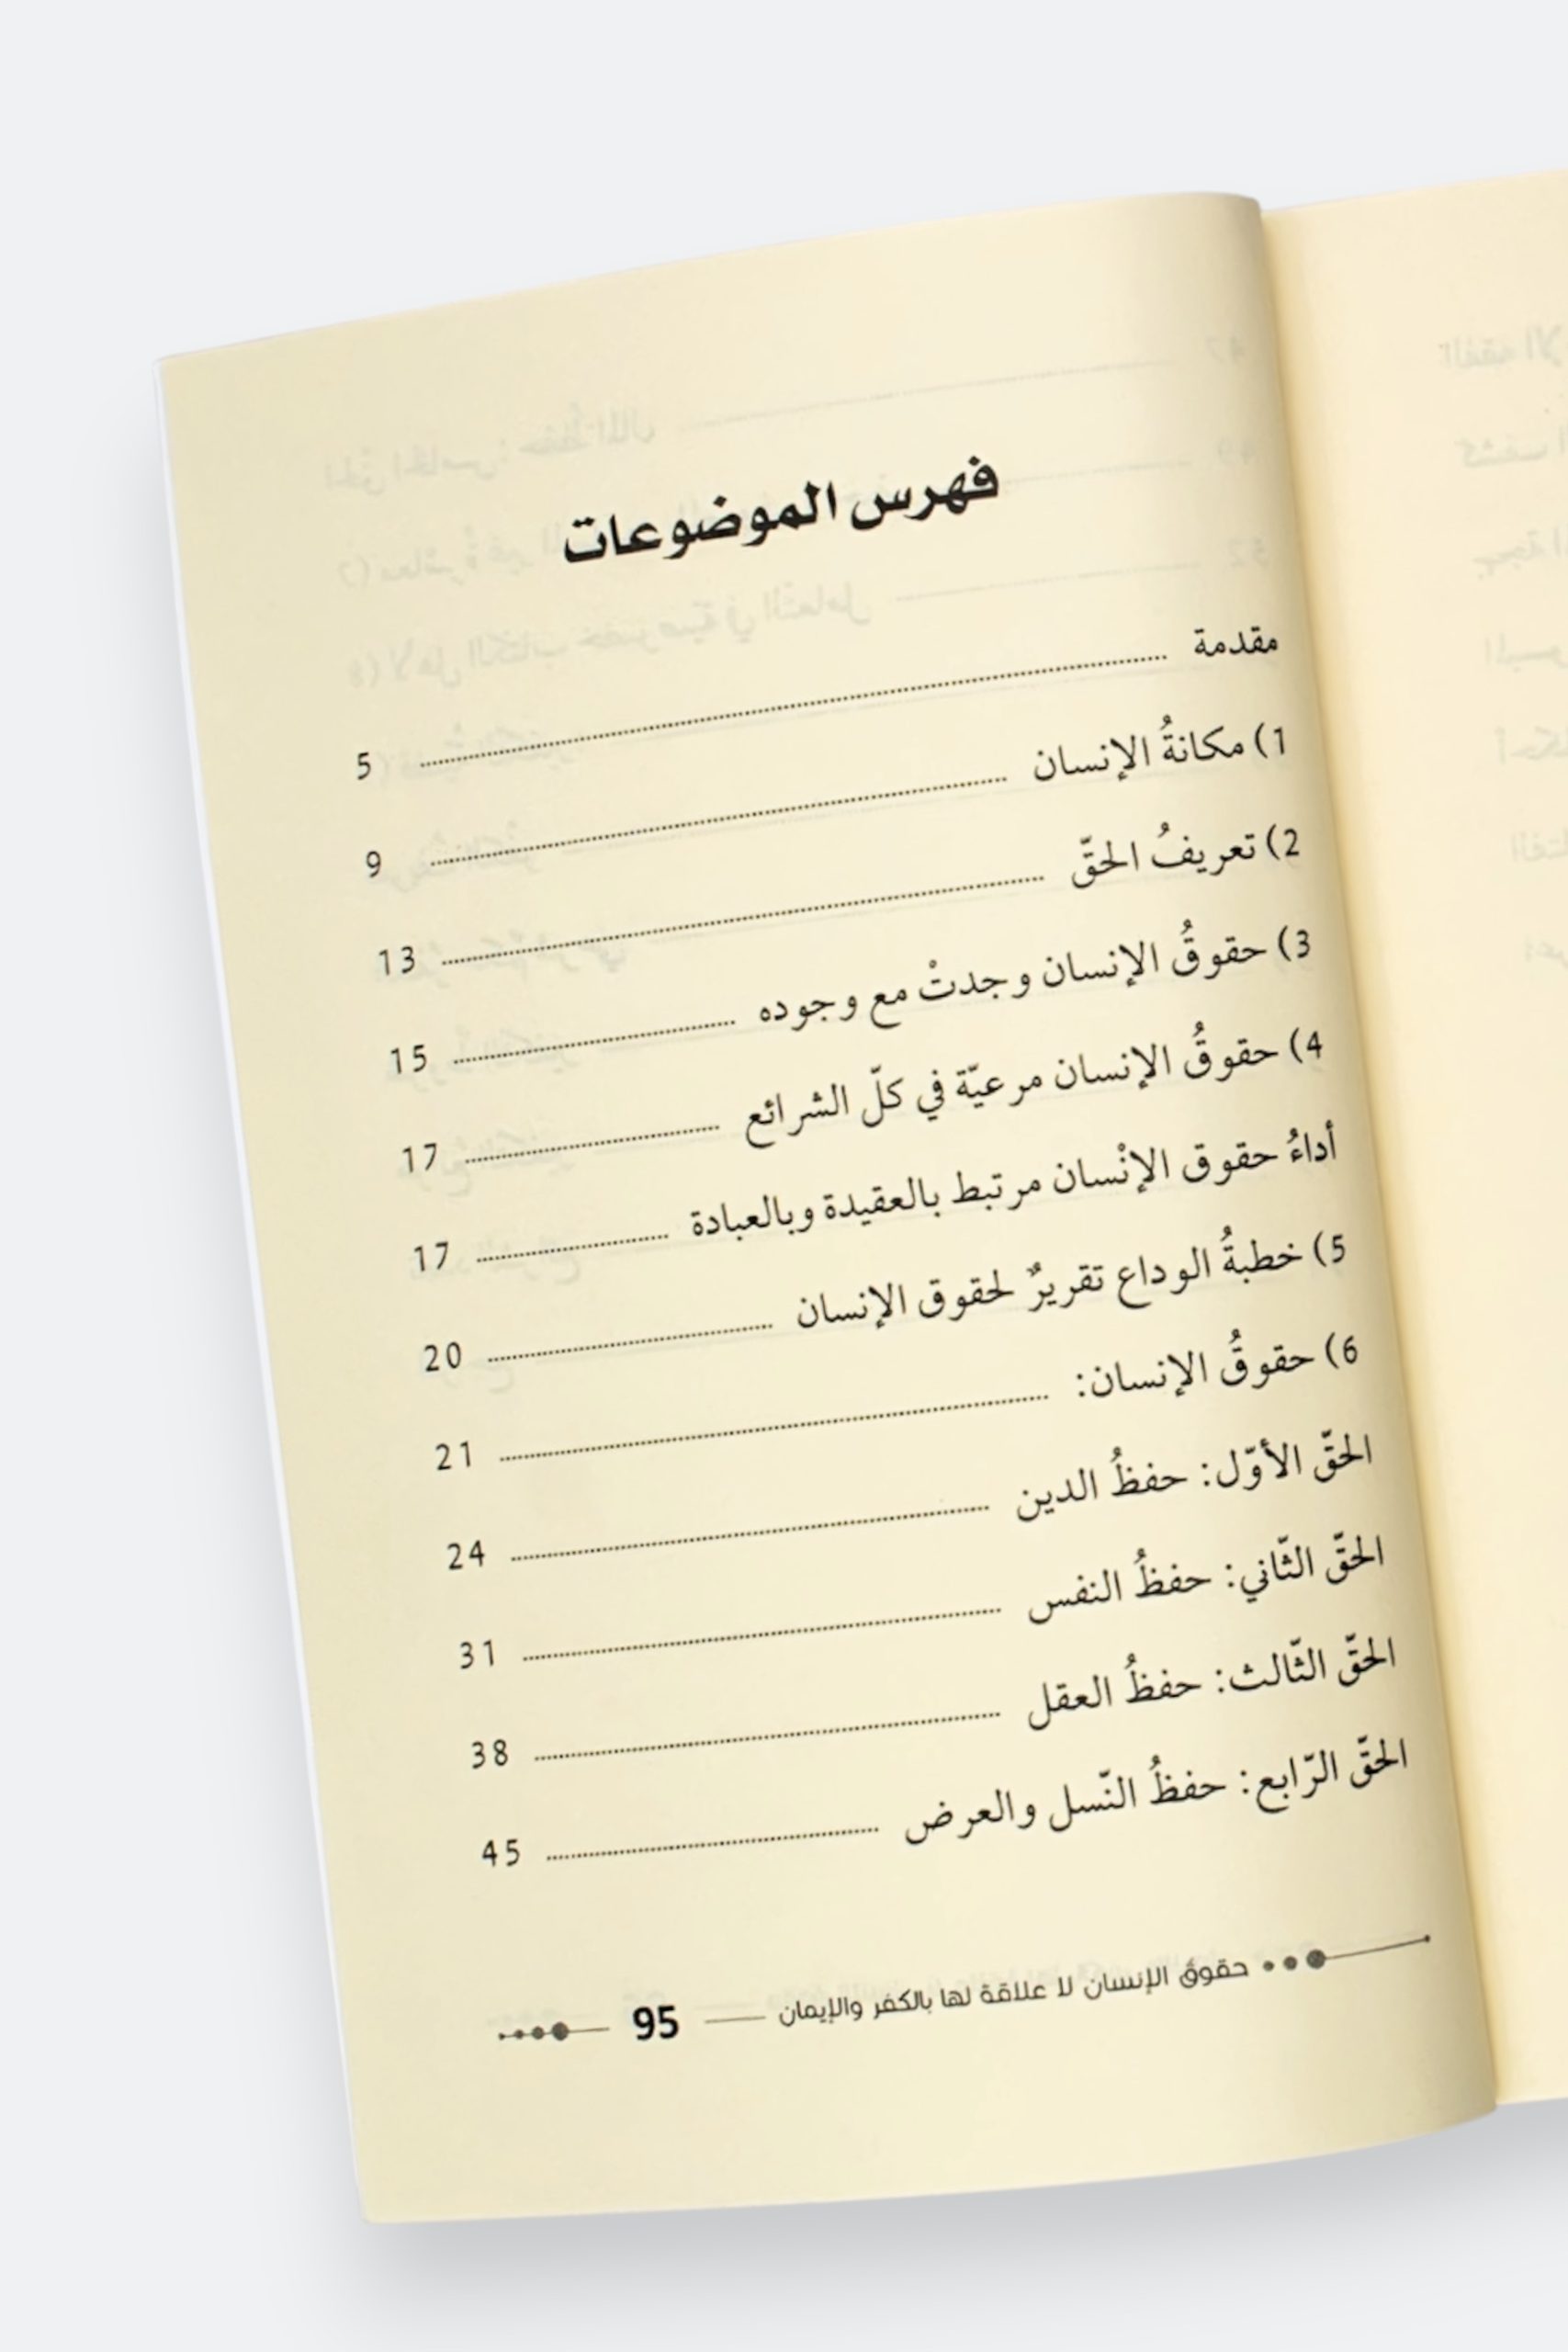 فهرس الموضوعات
مقدمة ........ 5
1) مكانةُ الإنسان ........ 9
2) تعريفُ الحقّ ........ 13
3) حقوقُ الإنسان وجدتْ مع وجوده ........ 15
4) حقوقُ الإنسان مرعيّة في كلّ الشرائع ........ 17
أداءُ حقوق الإنْسان مرتبط بالعقيدة وبالعبادة ........ 17
5) خطبةُ الوداع تقريرٌ لحقوق الإنسان ........ 20
6) حقوقُ الإنسان: ........ 21
الحقّ الأوّل: حفظُ الدين ........ 24
الحقّ الثّاني: حفظُ النفس ........ 31
الحقّ الثّالث: حفظُ العقل ........ 38
الحقّ الرّابع: حفظُ النّسل والعرض ........ 45
حقوق الإنسان لا علاقة لها بالكفر والإيمان — 95